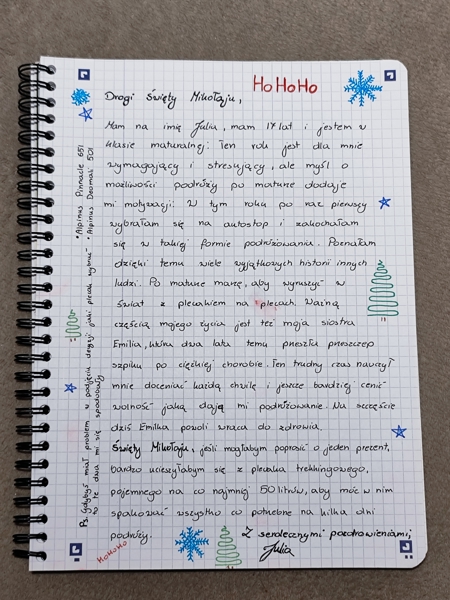 HoHoHo
Drogi Święty Mikołaju,
Mam na imię Julia, mam 17 lat i jestem w
klasie maturalnej. Ten rok jest dla mnie
wymagający i stresujący, ale myśl o
możliwości podróży po maturze dodaje
mi motywacji. W tym roku po raz pierwszy
wybrałam się na autostop i zakochałam
się w takiej formie podróżowania. Poznałam
dzięki temu wiele wyjątkowych historii innych
ludzi. Po maturze marzę, aby wyruszyć w
świat z plecakiem na plecach. Ważną
częścią mojego życia jest też moja siostra
Emilia, która dwa lata temu przeszła przeszczep
szpiku po ciężkiej chorobie. Ten trudny czas nauczył
mnie doceniać każdą chwilę i jeszcze bardziej cenić
wolność jaką dają mi podróżowanie. Na szczęście
dziś Emilka powoli wraca do zdrowia.
Święty Mikołaju, jeśli mogłabym poprosić o jeden prezent,
bardzo ucieszyłabym się z plecaka trekkingowego,
pojemnego na co najmniej 50 litrów, aby móc w nim
spakować wszystko co potrzebne na kilka dni
podróży.
Z serdecznymi pozdrowieniami,
Julia
HoHoHo
Ps. Gdybyś miał problem w podjęciu decyzji jaki plecak wybrać
to te dwa mi się spodobały
*Alpinus Pinnacle 65l
*Alpinus Denali 50l